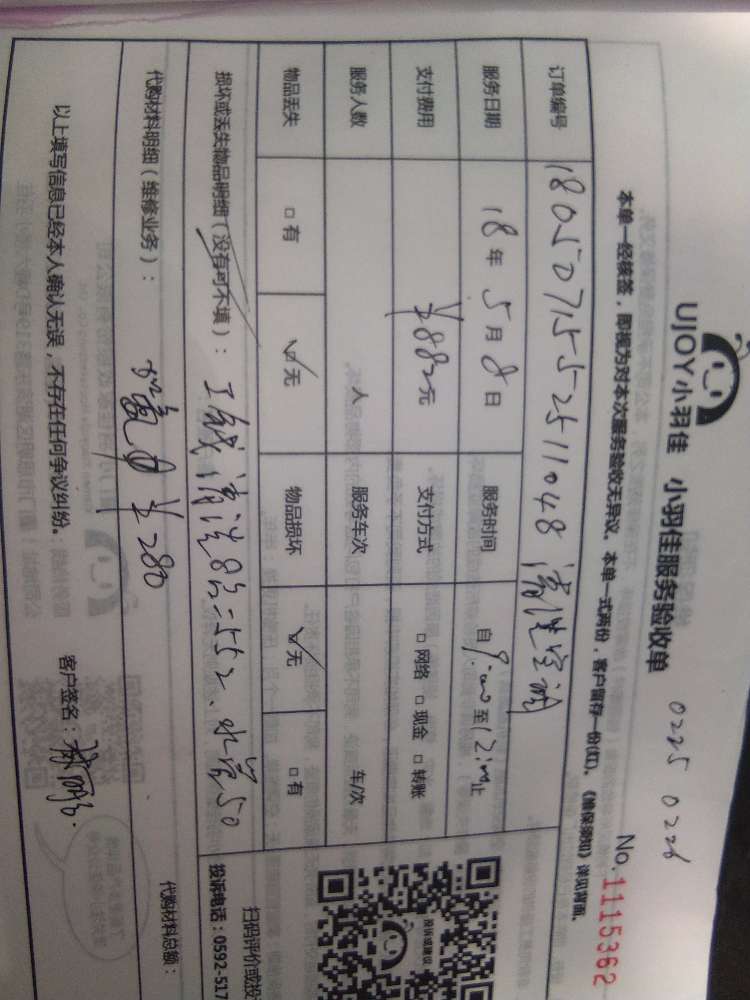 0225 0226
UJOY小羽佳 小羽佳服务验收单
No.1115362
本单一经核签,即视为对本次服务验收无异议。本单一式两份,客户留存一份(红)。《维保须知》详见背面。
订单编号 1805071552511048 清洗空调
服务日期 18年5月8日 服务时间 自9:00至12:00止
支付费用 ¥882元 支付方式 □网络 □现金 □转账
服务人数 人 服务车次 车/次
物品丢失 □有 ☑无 物品损坏 ☑无 □有
损坏或丢失物品明细(没有可不填): 工钱清洗8台=552、水管50
代购材料明细(维修业务): ¥280
代购材料总额:
以上填写信息已经本人确认无误,不存在任何争议纠纷。 客户签名:
投诉或建议
扫码评价或投
投诉电话:0592-517